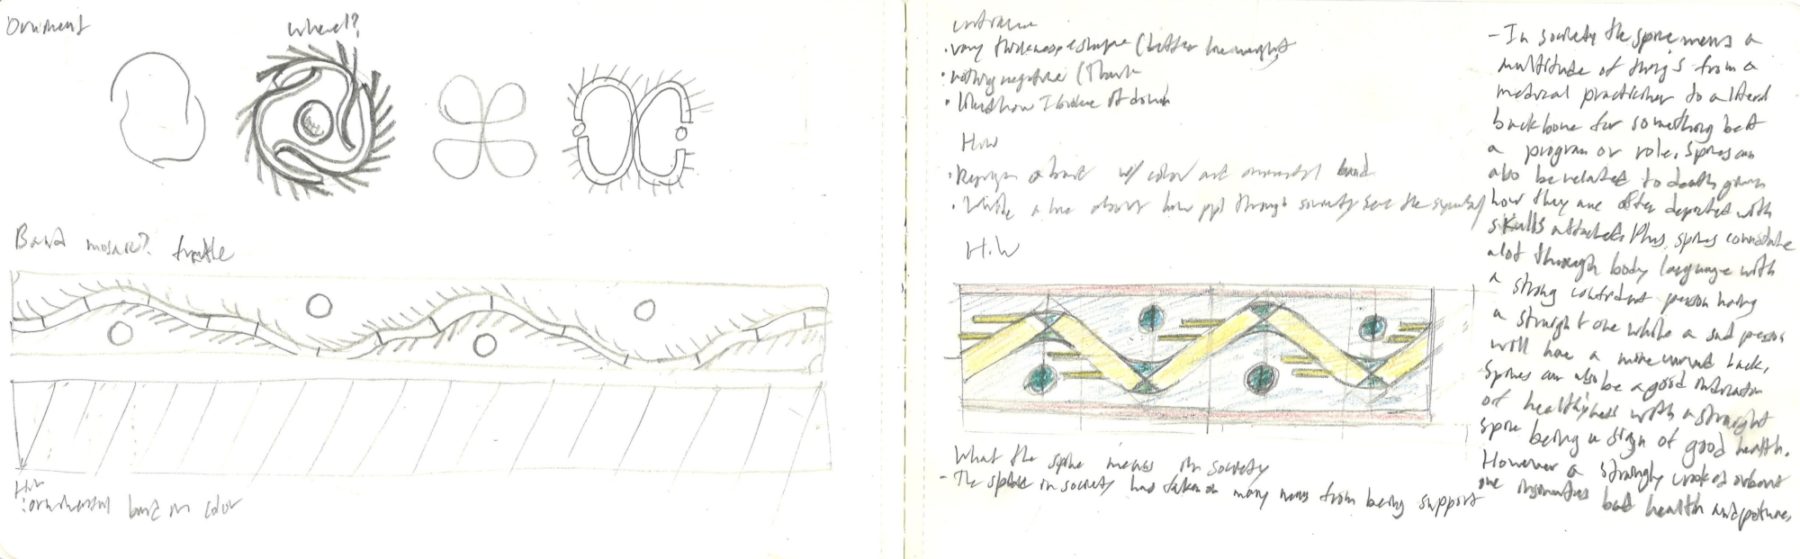 Ornament
wheel?
Band mosaic? 
HW
: ornamental band in color
critique
• vary thickness + shape (better lineweight
• nothing negative (
• 
HW
• w/ color and ornamental band
• Write a line about how ppl through society see the symbol
H.W
What the spine means in society
- The spine in society has taken on many from being support
- In society the spine means a
multitude of things from a
medical practicioner to a literal
backbone for something but
a program or role. Spines can
also be related to death given
how they are often depicted with
skulls attached. Plus, spines connotate
alot through body language with
a strong confident person having
a straight one while a sad person
will have a more curved back.
Spines can also be a good indicator
of healthyness with a straight
spine being a sign of good health.
However a strongly crooked or bent
one insinuates bad health and posture.